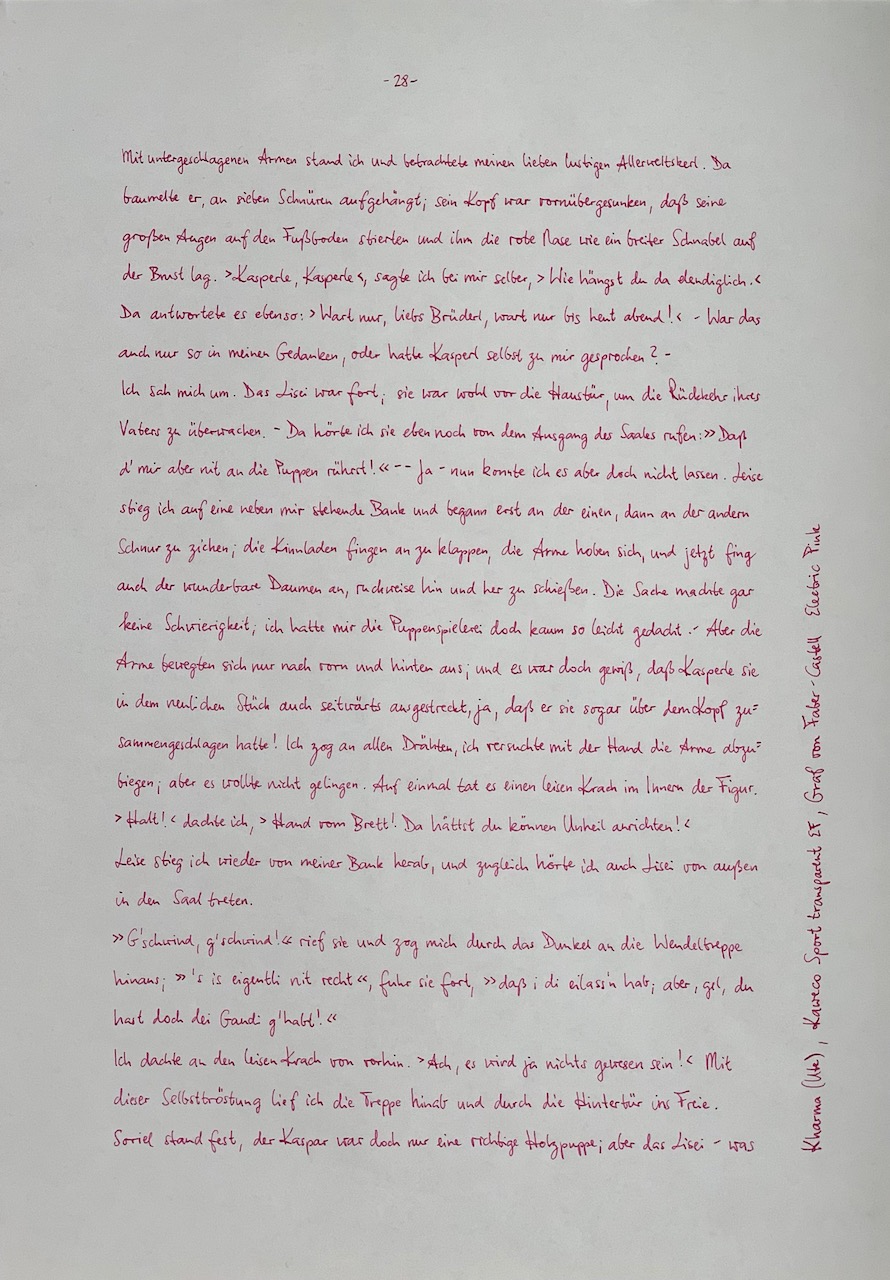 - 28 -
Mit untergeschlagenen Armen stand ich und betrachtete meinen lieben lustigen Allerweltskerl. Da
baumelte er, an sieben Schnüren aufgehängt; sein Kopf war vornübergesunken, daß seine
großen Augen auf den Fußboden stierten und ihm die rote Nase wie ein breiter Schnabel auf
der Brust lag. ›Kasperle, Kasperle‹, sagte ich bei mir selber, ›Wie hängst du da elendiglich.‹
Da antwortete es ebenso: ›Wart nur, liebs Brüderl, wart nur bis heut abend!‹ - War das
auch nur so in meinen Gedanken, oder hatte Kasperl selbst zu mir gesprochen? -
Ich sah mich um. Das Lisei war fort; sie war wohl vor die Haustür, um die Rückkehr ihres
Vaters zu überwachen. - Da hörte ich sie eben noch von dem Ausgang des Saales rufen: »Daß
d' mir aber nit an die Puppen rührst!« -- Ja - nun konnte ich es aber doch nicht lassen. Leise
stieg ich auf eine neben mir stehende Bank und begann erst an der einen, dann an der andern
Schnur zu ziehen; die Kinnladen fingen an zu klappen, die Arme hoben sich, und jetzt fing
auch der wunderbare Daumen an, ruckweise hin und her zu schießen. Die Sache machte gar
keine Schwierigkeit; ich hatte mir die Puppenspielerei doch kaum so leicht gedacht. - Aber die
Arme bewegten sich nur nach vorn und hinten aus; und es war doch gewiß, daß Kasperle sie
in dem neulichen Stück auch seitwärts ausgestreckt, ja, daß er sie sogar über dem Kopf zu=
sammengeschlagen hatte! Ich zog an allen Drähten, ich versuchte mit der Hand die Arme abzu=
biegen; aber es wollte nicht gelingen. Auf einmal tat es einen leisen Krach im Innern der Figur.
›Halt!‹ dachte ich, ›Hand vom Brett! Da hättst du können Unheil anrichten!‹
Leise stieg ich wieder von meiner Bank herab, und zugleich hörte ich auch Lisei von außen
in den Saal treten.
»G'schwind, g'schwind!« rief sie und zog mich durch das Dunkel an die Wendeltreppe
hinaus; »'s is eigentli nit recht«, fuhr sie fort, »daß i di eilass'n hab; aber, gel, du
hast doch dei Gaudi g'habt!«
Ich dachte an den leisen Krach von vorhin. ›Ach, es wird ja nichts gewesen sein!‹ Mit
dieser Selbsttröstung lief ich die Treppe hinab und durch die Hintertür ins Freie.
Soviel stand fest, der Kaspar war doch nur eine richtige Holzpuppe; aber das Lisei - was
Kharma (Ute), Kaweco Sport transparent EF, Graf von Faber-Castell Electric Pink